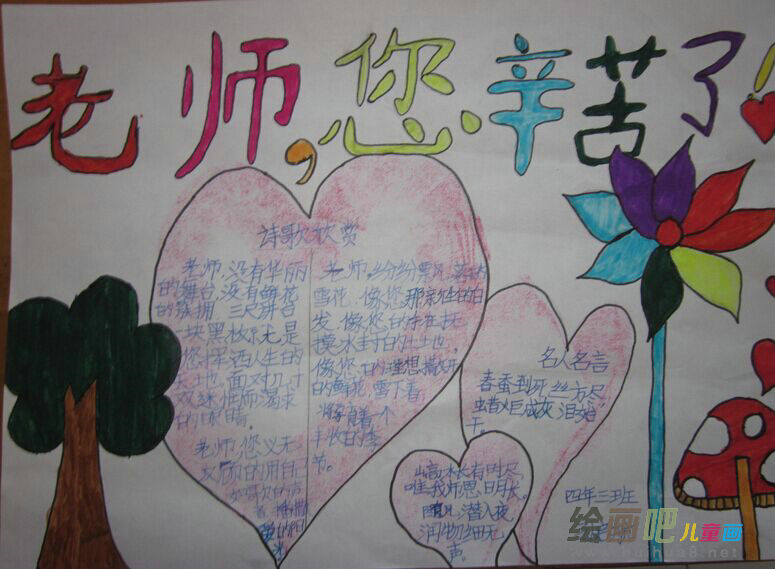 老师,您辛苦了!
诗歌欣赏
老师,没有华丽
的舞台,没有鲜花
的簇拥,三尺讲台
一块黑板,无是
您挥洒人生的
天地,面对几十
双迷惟而渴求
的眼睛。
老师,您义无
老师,纷纷飘
雪花,像您那
发,像您的存在抚
摸冰封的土地,
像您
的理想
的鲜花,雪下看
着一个
丰收的季
节。
名人名言
春蚕到死丝方尽
蜡炬成灰泪始
干。
山高水长有时尽
唯我师恩日月长。
随风潜入夜
润物细无
声。
四年三班
绘画吧儿童画
www.huihua8.net